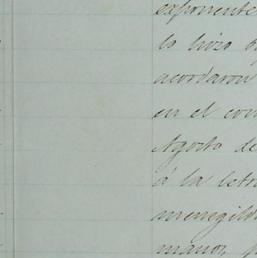 exponente
lo hizo
acordaron
en el con
Agosto de
á la letra
menegild
manos, p